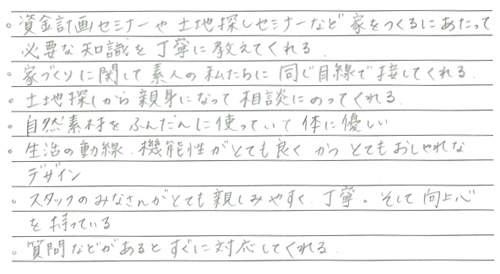 。資金計画セミナーや土地探しセミナーなど家をつくるにあたって
必要な知識を丁寧に教えてくれる
。家づくりに関して素人の私たちに同じ目線で接してくれる.
。土地探しから親身になって相談にのってくれる.
。自然素材をふんだんに使っていて体に優しい
。生活の動線.機能性がとても良くかつとてもおしゃれな
デザイン
。スタッフのみなさんがとても親しみやすく.丁寧。そして向上心
を持っている
。質問などがあるとすぐに対応してくれる.